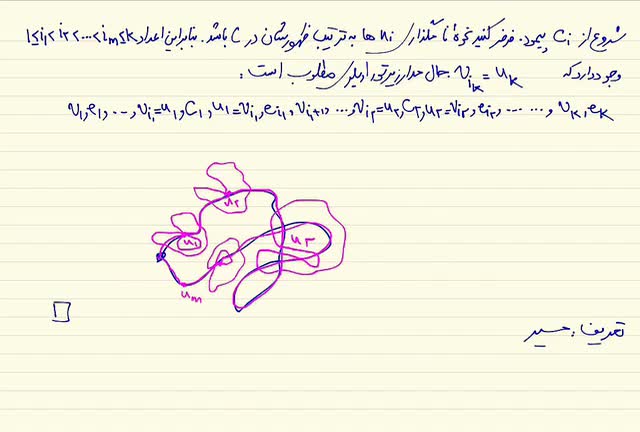 شروع از Ci پیمود. فرض کنید نحوهٔ نامگذاری ui ها به ترتیب ظهورشان در C باشد. بنابراین اعداد 1≤i1<i2<...<im≤k
وجود دارد که v_{ik} = uk حال مدار زیر تور اویلری مطلوب است:
v1, e1, ..., vi1=u1, C1, u1=vi1, ei1, vi1+1, ..., vi2=u2, C2, u2=vi2, ei2, ... ..., vk, ek
u2
u1
u3
um
تعریف: مسیر